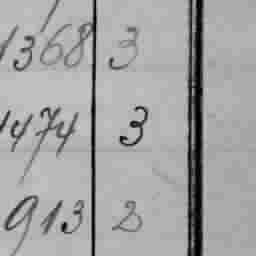 1368 3
1474 3
913 2